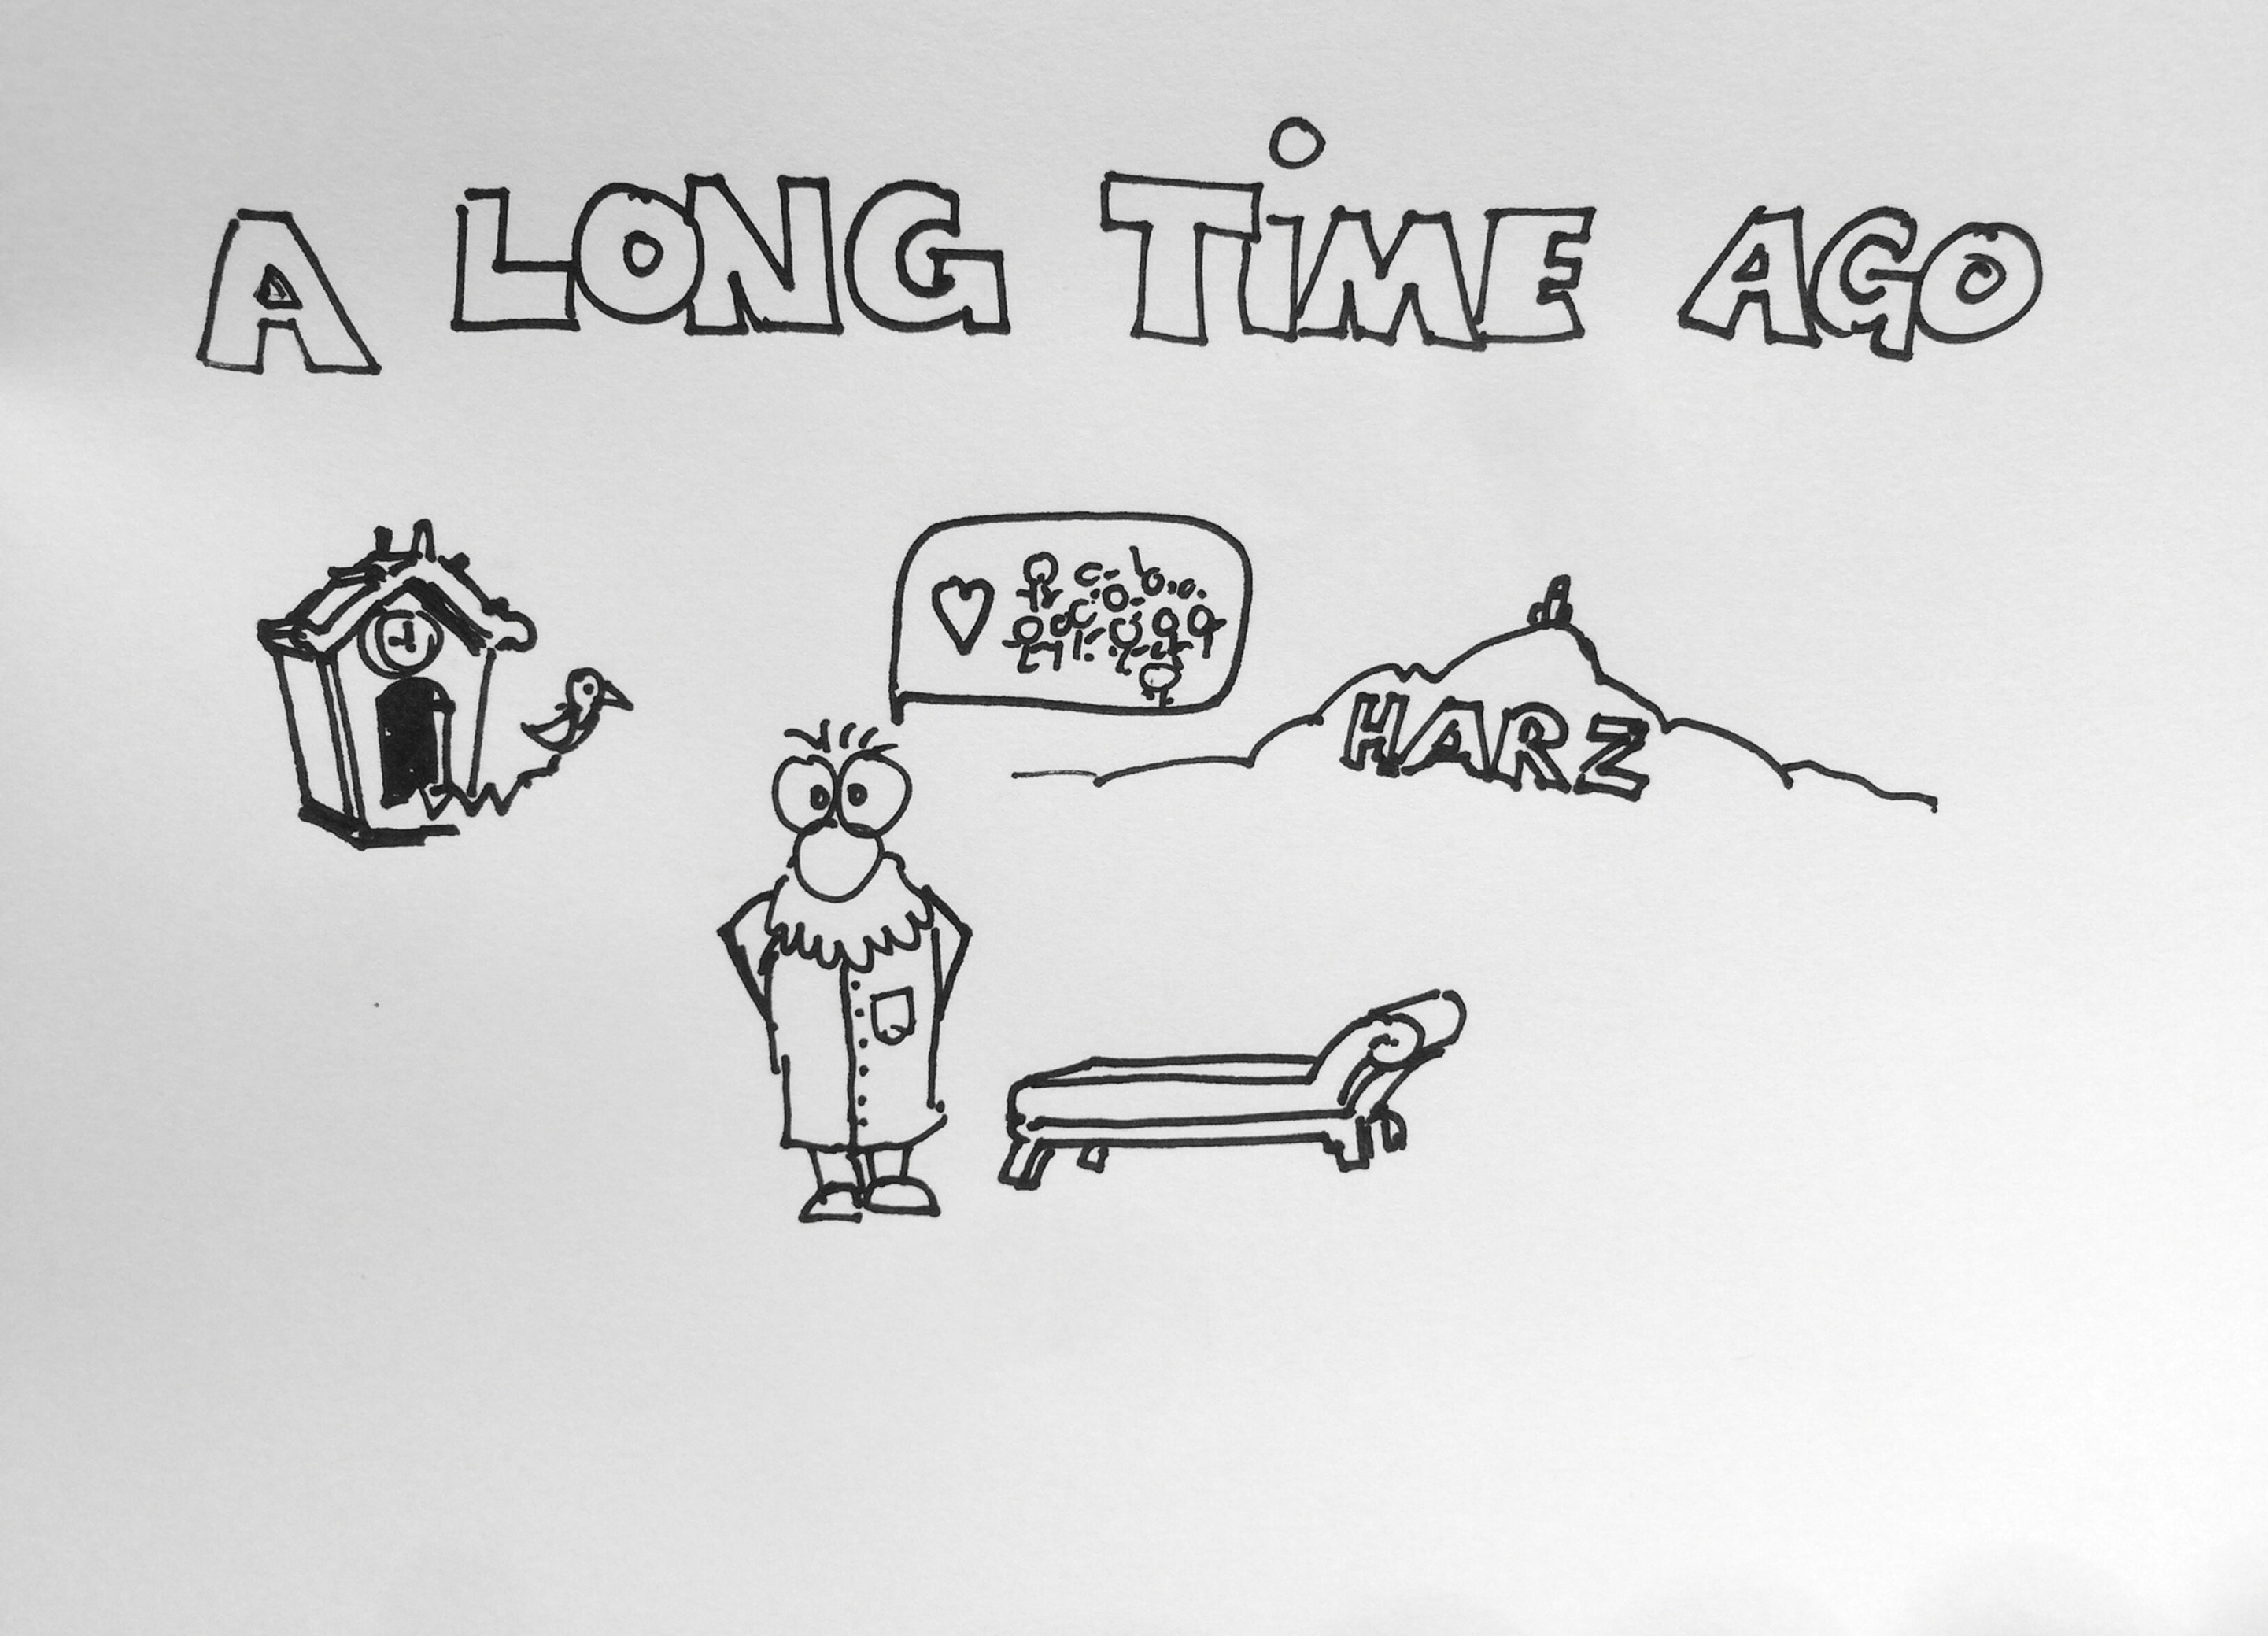 A LONG TiME AGO
HARZ